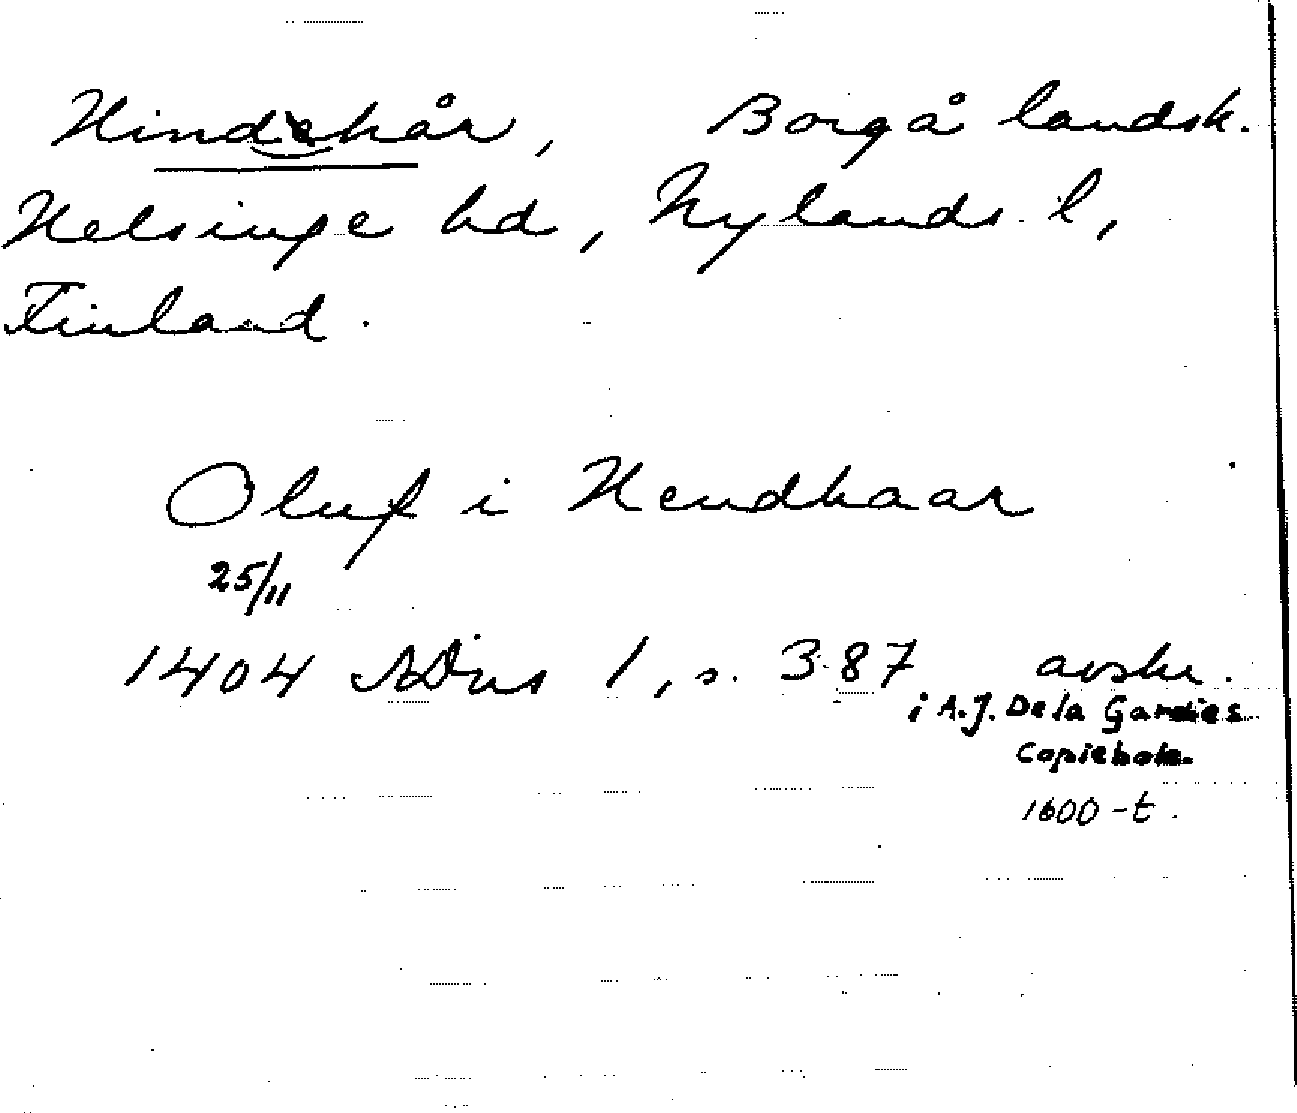 Hindehår, Borgå landsk.
Helsinge hd, Nylands l,
Finland.
Oluf i Hendhaar
25/11
1404 SDns 1, s. 387 avskr.
i A.J. De la Gardies
Copiebok.
1600-t.